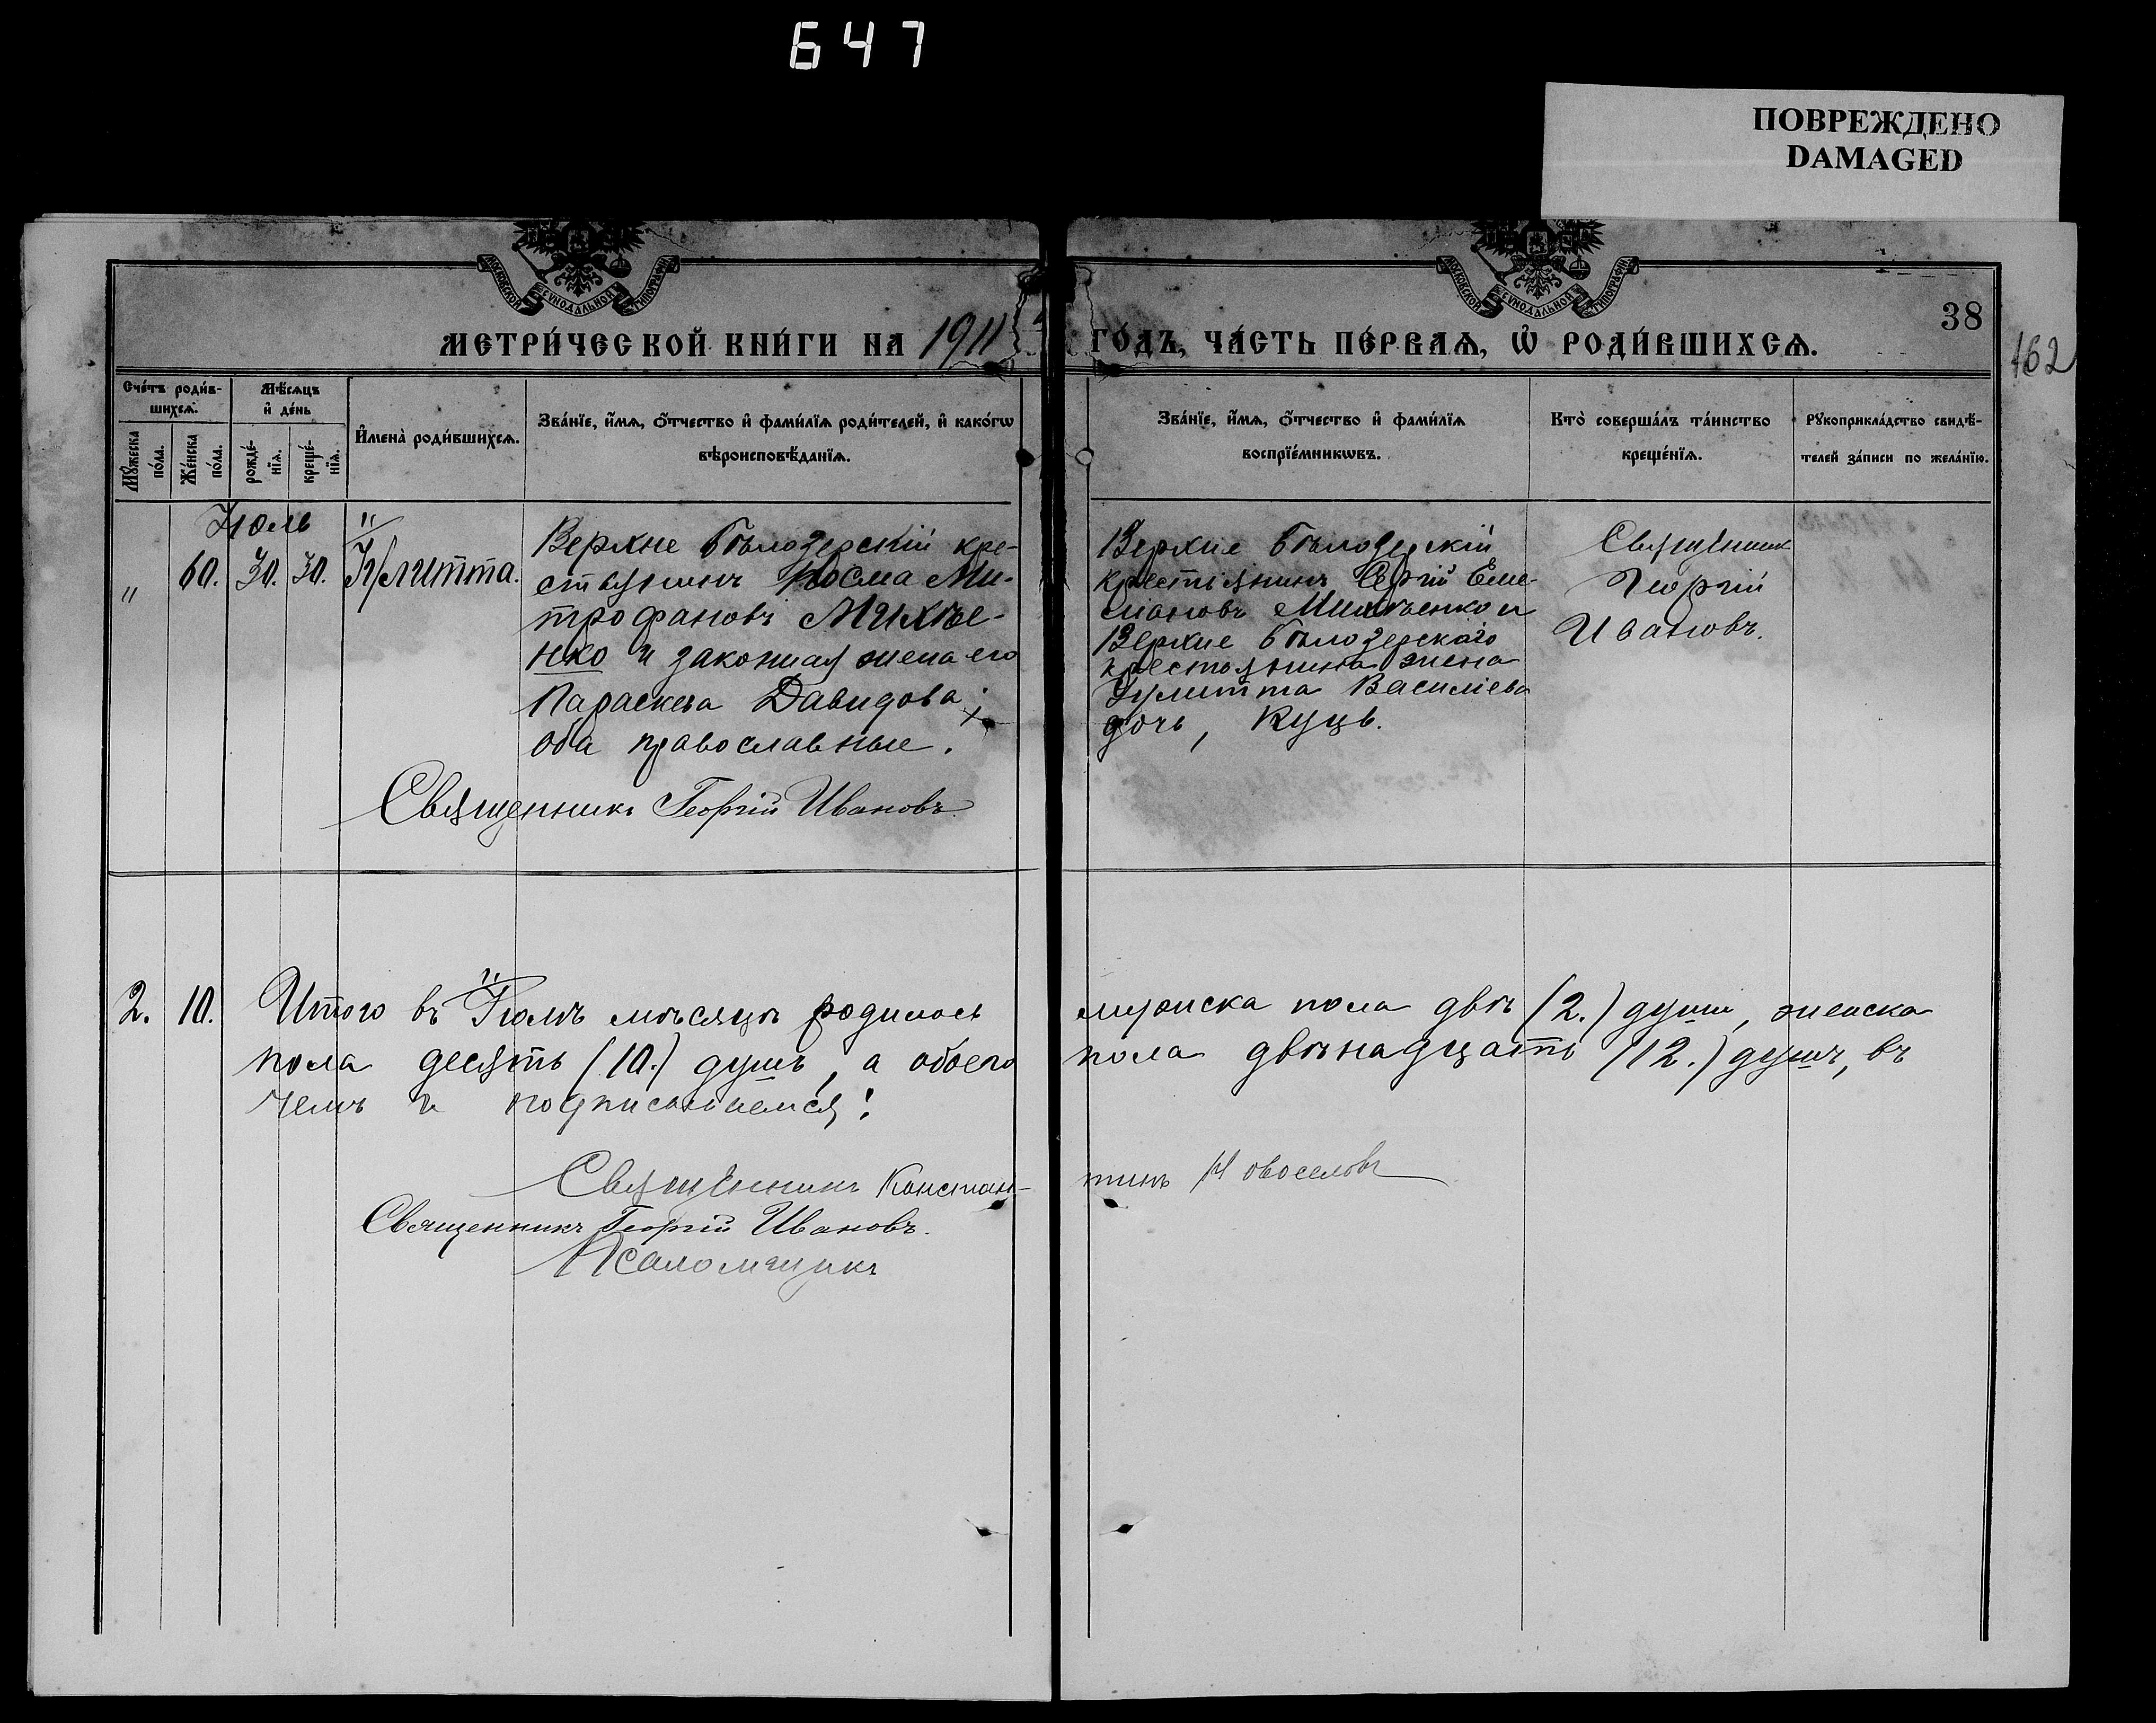 647
ПОВРЕЖДЕНО
DAMAGED
МОСКОВСКОЙ СѴНОДАЛЬНОЙ ТИПОГРАФІИ
МОСКОВСКОЙ СѴНОДАЛЬНОЙ ТИПОГРАФІИ
38
162
МЕТРИ́ЧЕСКОЙ КНИ́ГИ НА 1911
ГО́ДЪ, ЧА́СТЬ ПЕ́РВАѦ, Ѡ҆ РОДИ́ВШИХСѦ.
Сче́тъ роди́в-
шихсѧ.
Мꙋ́жеска
по́ла.
Же́нска
по́ла.
Мѣ́сѧцъ
и҆ де́нь
рожде́-
нїѧ.
креще́-
нїѧ.
И҆мена̀ роди́вшихсѧ.
Зва́нїе, и҆́мѧ, ѻ҆́тчество и҆ фами́лїѧ роди́телей, и҆ како́гѡ
вѣроисповѣ́данїѧ.
Зва́нїе, и҆́мѧ, ѻ҆́тчество и҆ фами́лїѧ
воспрїе́мникѡвъ.
Кто̀ соверша́лъ та́инство
креще́нїѧ.
Рꙋкоприкла́дство свидѣ́-
телей за́писи по жела́нїю.
Іюль
" 60. 30. 30. Іулитта.
Верхне бѣлозерскій кре-
стьянинъ Косма Ми-
трофановъ Михѣе-
нко и законная жена его
Параскева Давидова;
оба православные.
Священникъ Георгій Ивановъ
Верхне бѣлозерскій
крестьянинъ Сергій Еме-
ліановъ Михѣенко и
Верхне бѣлозерскаго
крестьянина жена
Іулитта Василіева
дочь, Куць.
Священникъ
Георгій
Ивановъ.
2. 10. Итого въ Іюлѣ мѣсяцѣ родилось
мужска пола двѣ (2.) души, женска
пола десять (10.) душъ, а обоего
пола двѣнадцать (12.) душъ, въ
чемъ и подписываемся:
Священникъ Констан-
тинъ Новоселовъ
Священникъ Георгій Ивановъ.
Псаломщикъ